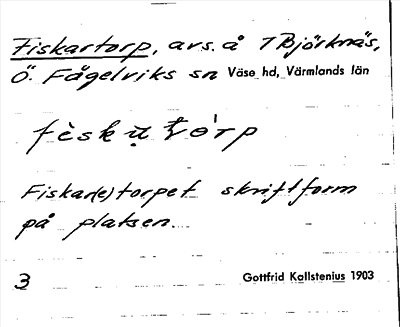 Fiskartorp, avs. å 7 Björknäs,
Ö. Fågelviks sn Väse hd, Värmlands län
fèskụt̄ór̀p
Fiskar(e)torpet skriftform
på platsen.
3 Gottfrid Kallstenius 1903